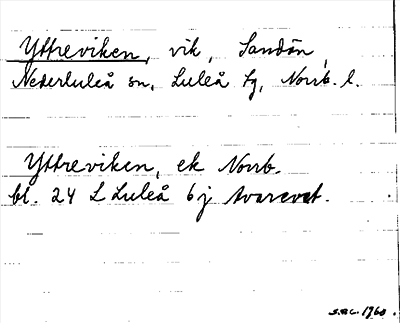 Yttreviken, vik, Sandön,
Nederluleå sn, Luleå tg, Norrb. l.
Yttreviken, ek Norrb.
bl. 24 L Luleå 6 j Avarevet.
S.B.L. 1960.